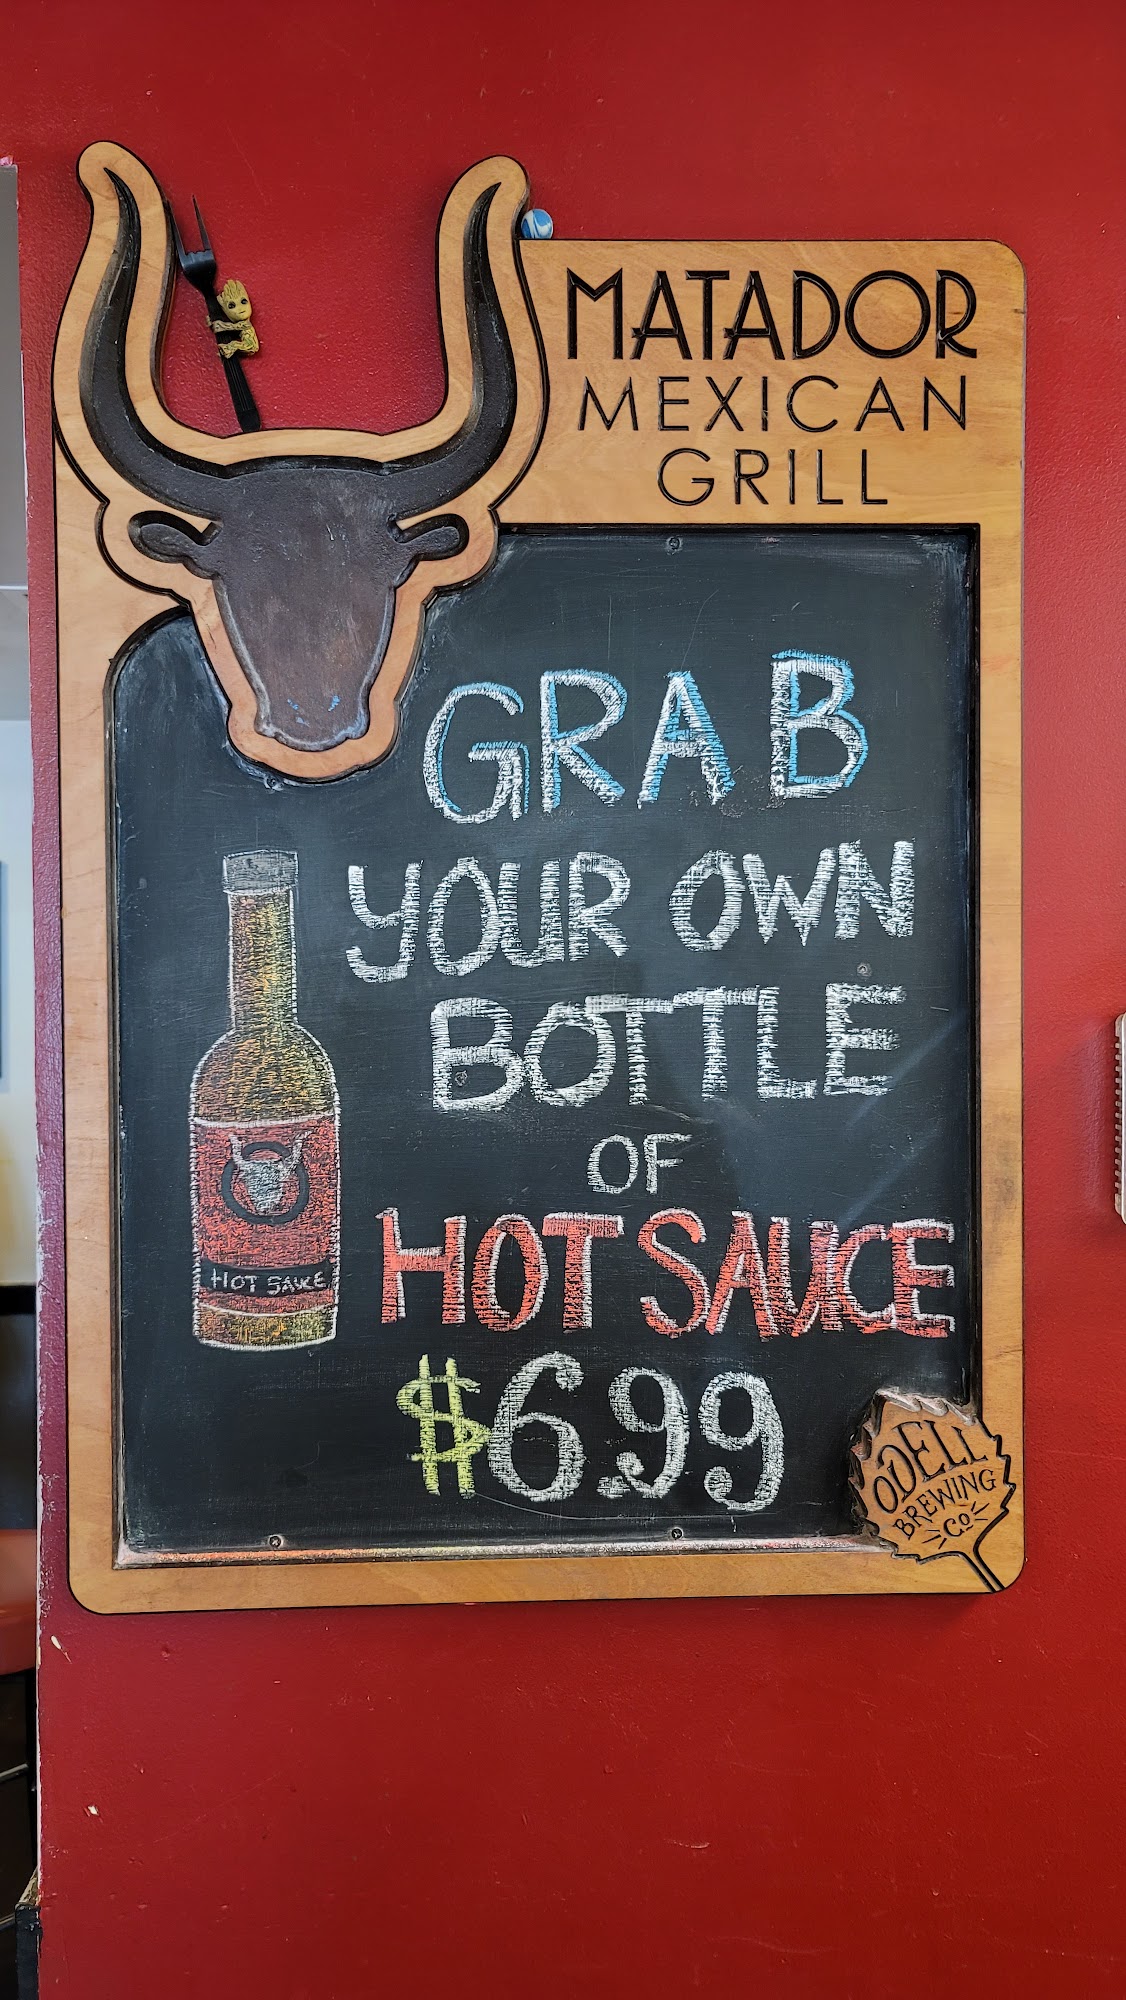 MATADOR
MEXICAN
GRILL
GRAB
YOUR OWN
BOTTLE
OF
HOT SAUCE
$6.99
HOT SAUCE
ODELL
BREWING
Co